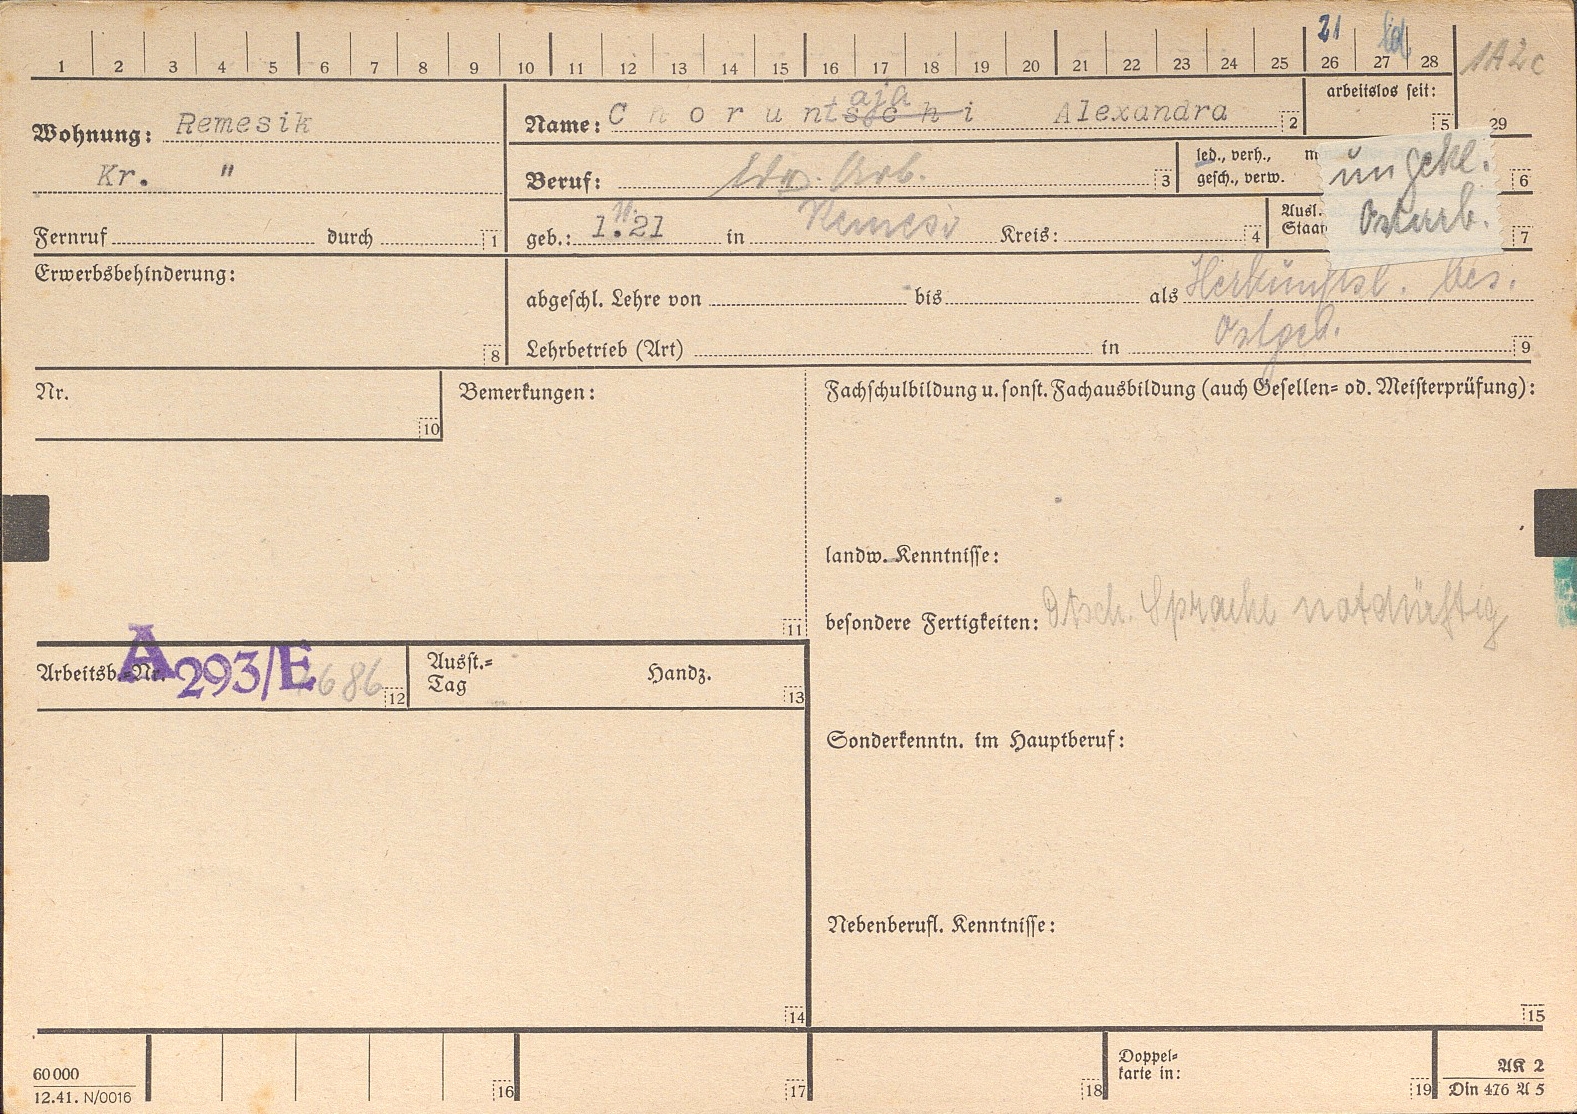 1 2 3 4 5 6 7 8 9 10 11 12 13 14 15 16 17 18 19 20 21 22 23 24 25 26 27 28
21 led
1A2c
Wohnung: Remesik
Kr. "
Fernruf durch 1
Name: Choruntschi aja Alexandra 2
arbeitslos seit: 5 29
Beruf: Ldw. Arb. 3
led., verh., m
gesch., verw. 6
ungekl.
Ostarb.
geb.: 1.11.21 in Kreis: 4
Ausl.
Staa 7
Erwerbsbehinderung: 8
abgeschl. Lehre von bis als Herkunftsl. bes.
Ostgeb.
Lehrbetrieb (Art) in 9
Nr. 10
Bemerkungen: 11
Fachschulbildung u. sonst. Fachausbildung (auch Gesellen= od. Meisterprüfung):
landw. Kenntnisse:
besondere Fertigkeiten: Dtsch. Sprache notdürftig
Arbeitsb.-Nr. A293/E 686 12
Ausst.=
Tag Handz. 13
Sonderkenntn. im Hauptberuf:
Nebenberufl. Kenntnisse:
14 15
60000
12.41. N/0016
16 17 18
Doppel=
karte in: 19
AK 2
Din 476 A 5